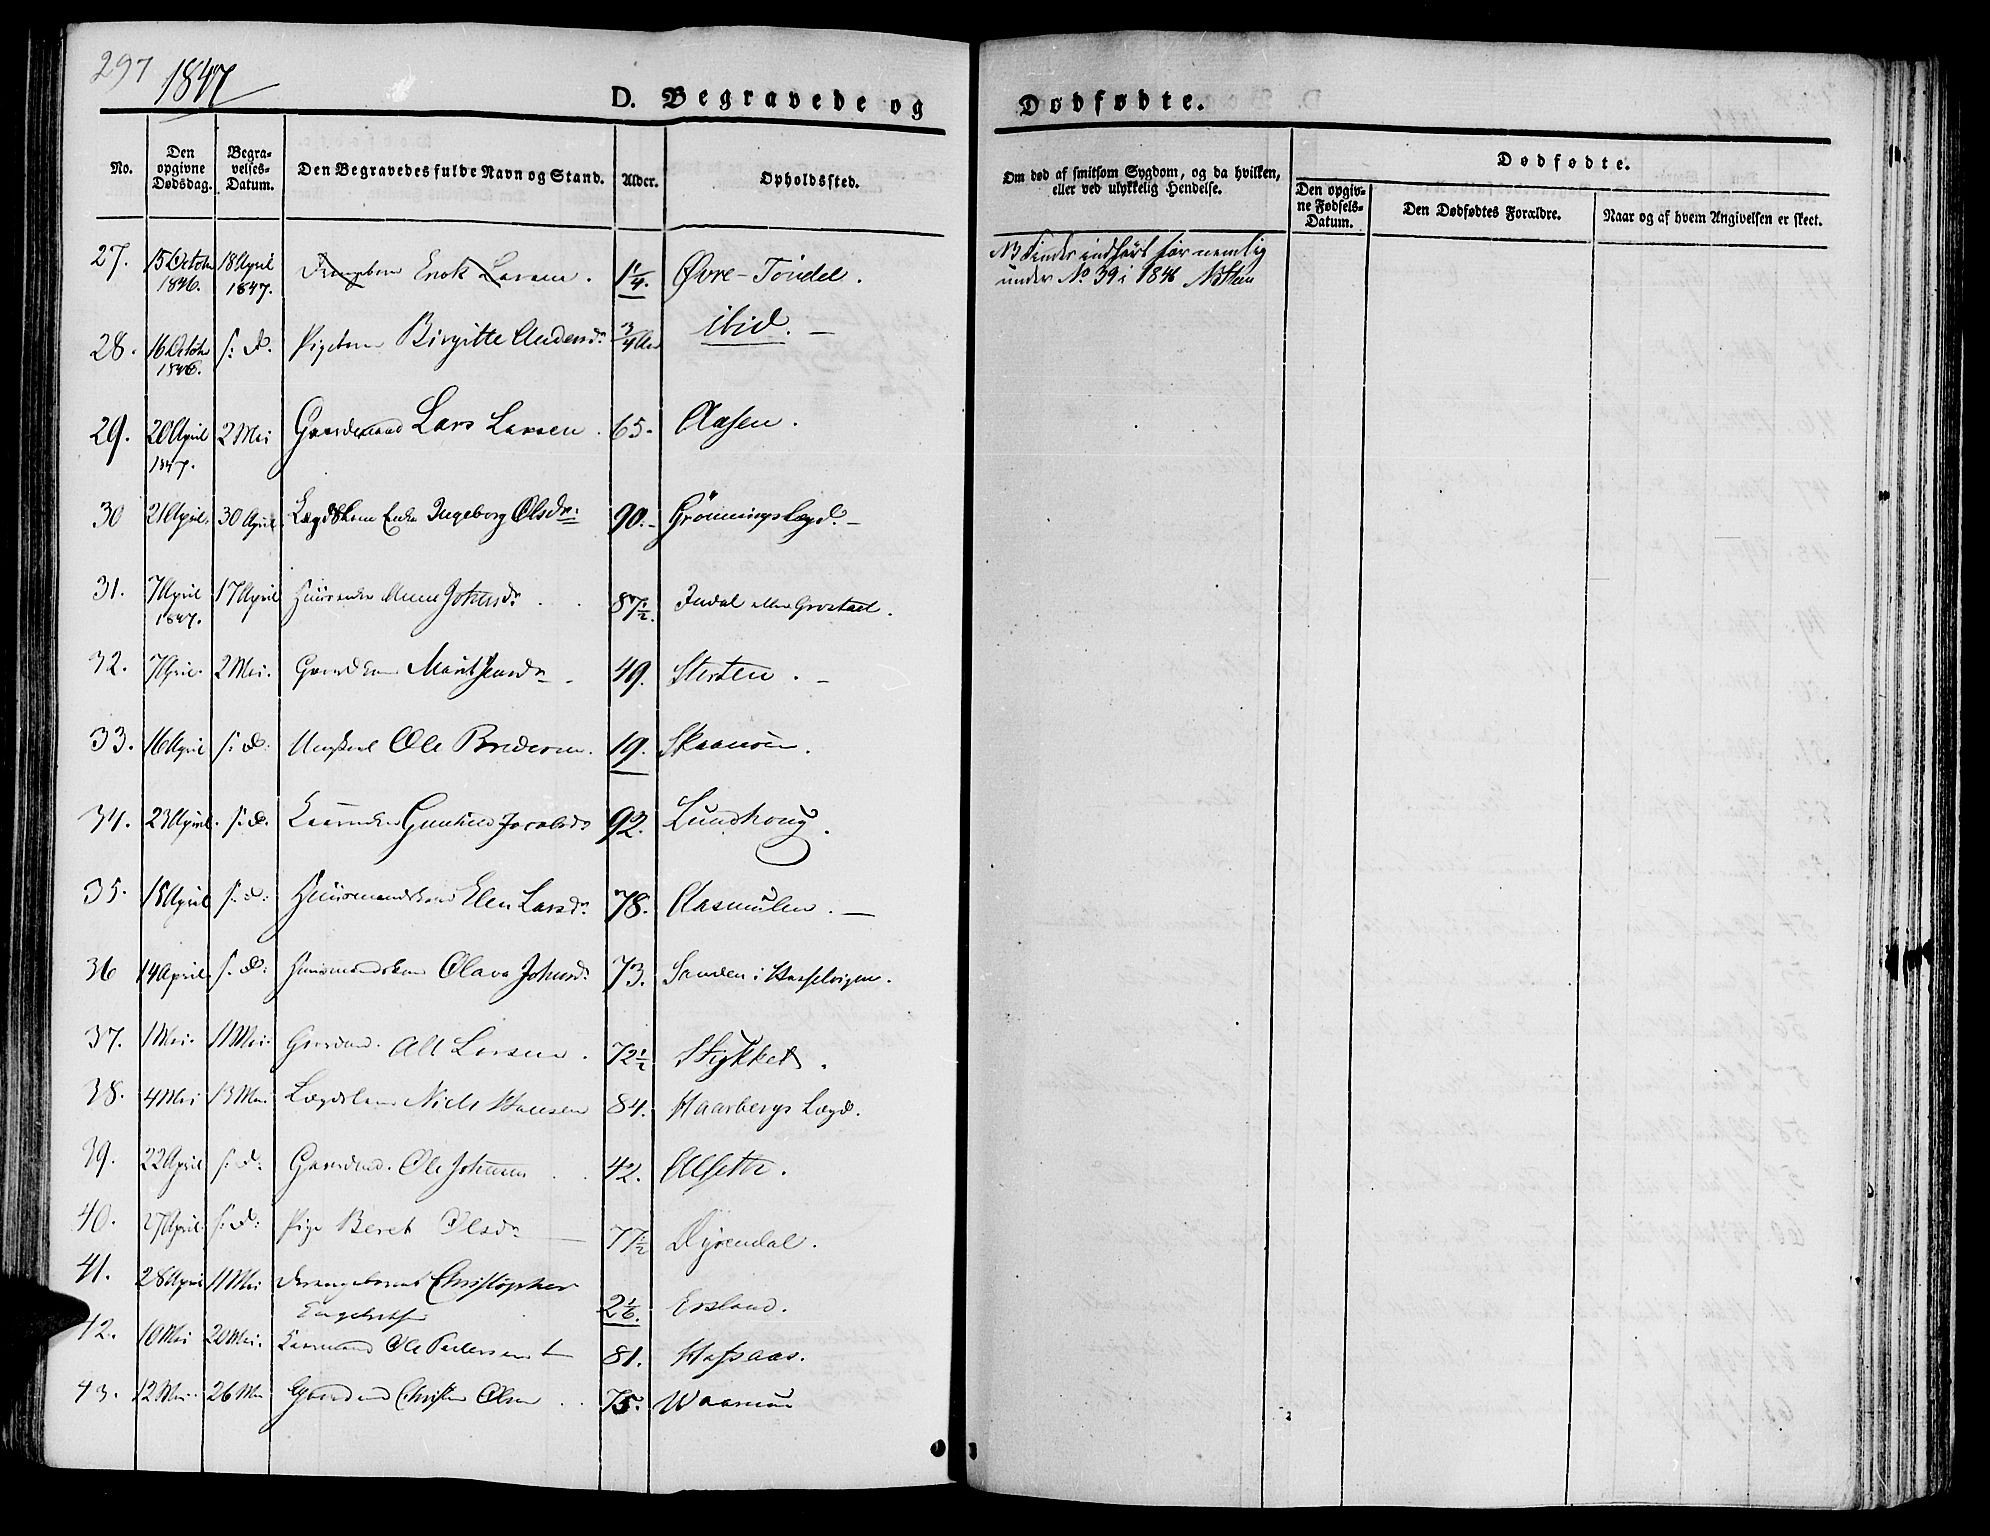 297 1847
D. Begravede og Dødfødte.
No. Den opgivne Dødsdag. Begravelses-Datum. Den Begravedes fulde Navn og Stand. Alder. Opholdssted.
Om død af smitsom Sygdom, og da hvilken, eller ved ulykkelig Hendelse.
Dødfødte.
Den opgivne Fødsels-Datum. Den Dødfødtes Forældre. Naar og af hvem Angivelsen er skeet.
27. 15 Octobr 1846. 18 April 1847. Drengebarn Erik Larsen. 1 1/4. Øvre-Tøndel.
NB findes indført før nemlig
under No 39 i 1846
28. 16 Octobr 1846. s: D. Pigebarn Birgitte Andersdr 3/4 Aar ibid. —
29. 20 April 1847. 2 Mai Gaardmand Lars Larsen. 65. Aasen.
30 21 April. 30 April. Lægdslem Enke Ingeborg Olsdr: 90. Grönningslægd. —
31. 7 April 1847. 17 April Huusenke Johnsdr. 87 1/2. Indal eller Grostad.
32. 7 April. 2 Mai. Gaardkone Marit 49. Stersten. —
33. 16 April s: D: Ungkarl Ole Pedersen. 19. Skaanøen.
34. 23 April. s: D. Kaarenke Gunhild Jacobsdr 92. Lundhoug.
35. 15 April s: D: Huusmandskone Elen Larsdr 78. Aasmulen. —
36 14 April. s: D: Huusmandskone Olava Johnsdr 73. Sanden i Hasselvigen.
37. 1 Mai. 11 Mai. Gaardmd. Larsen. 72 1/2 Stykket.
38. 4 Mai 13 Mai Lægdslem Niels Hansen 84. Haarbergs Lægd.
39. 22 April s: D: Gaardmd. Ole Johnsen 42. Olseth.
40. 27 April. s: D: Pige Beret Olsdr — 77 1/2 Dyrendal.
41. 28 April 11 Mai Drengebarnet Christopher
Engebretsen 2 1/6. Ersland.
42. 10 Mai 20 Mai. Kaarmand Ole Pedersen 81. Hafsaas.
43. 12 Mai. 26 Mai Gaardmd Christen Olsen 75. Waarnæs